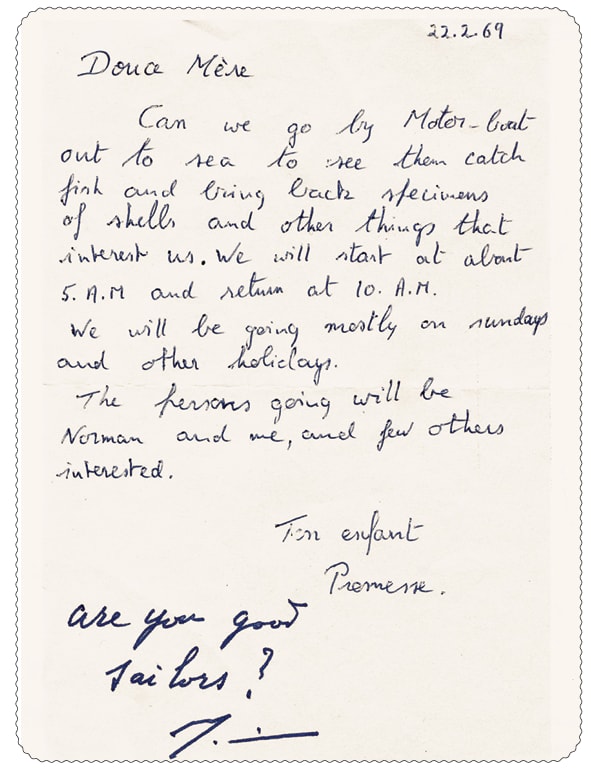 22.2.69
Douce Mère
Can we go by Motor-boat
out to sea to see them catch
fish and bring back specimens
of shells and other things that
interest us. We will start at about
5. A.M and return at 10. A.M.
We will be going mostly on sundays
and other holidays.
The persons going will be
Norman and me, and few others
interested.
Ton enfant
Promesse.
are you good
sailors?